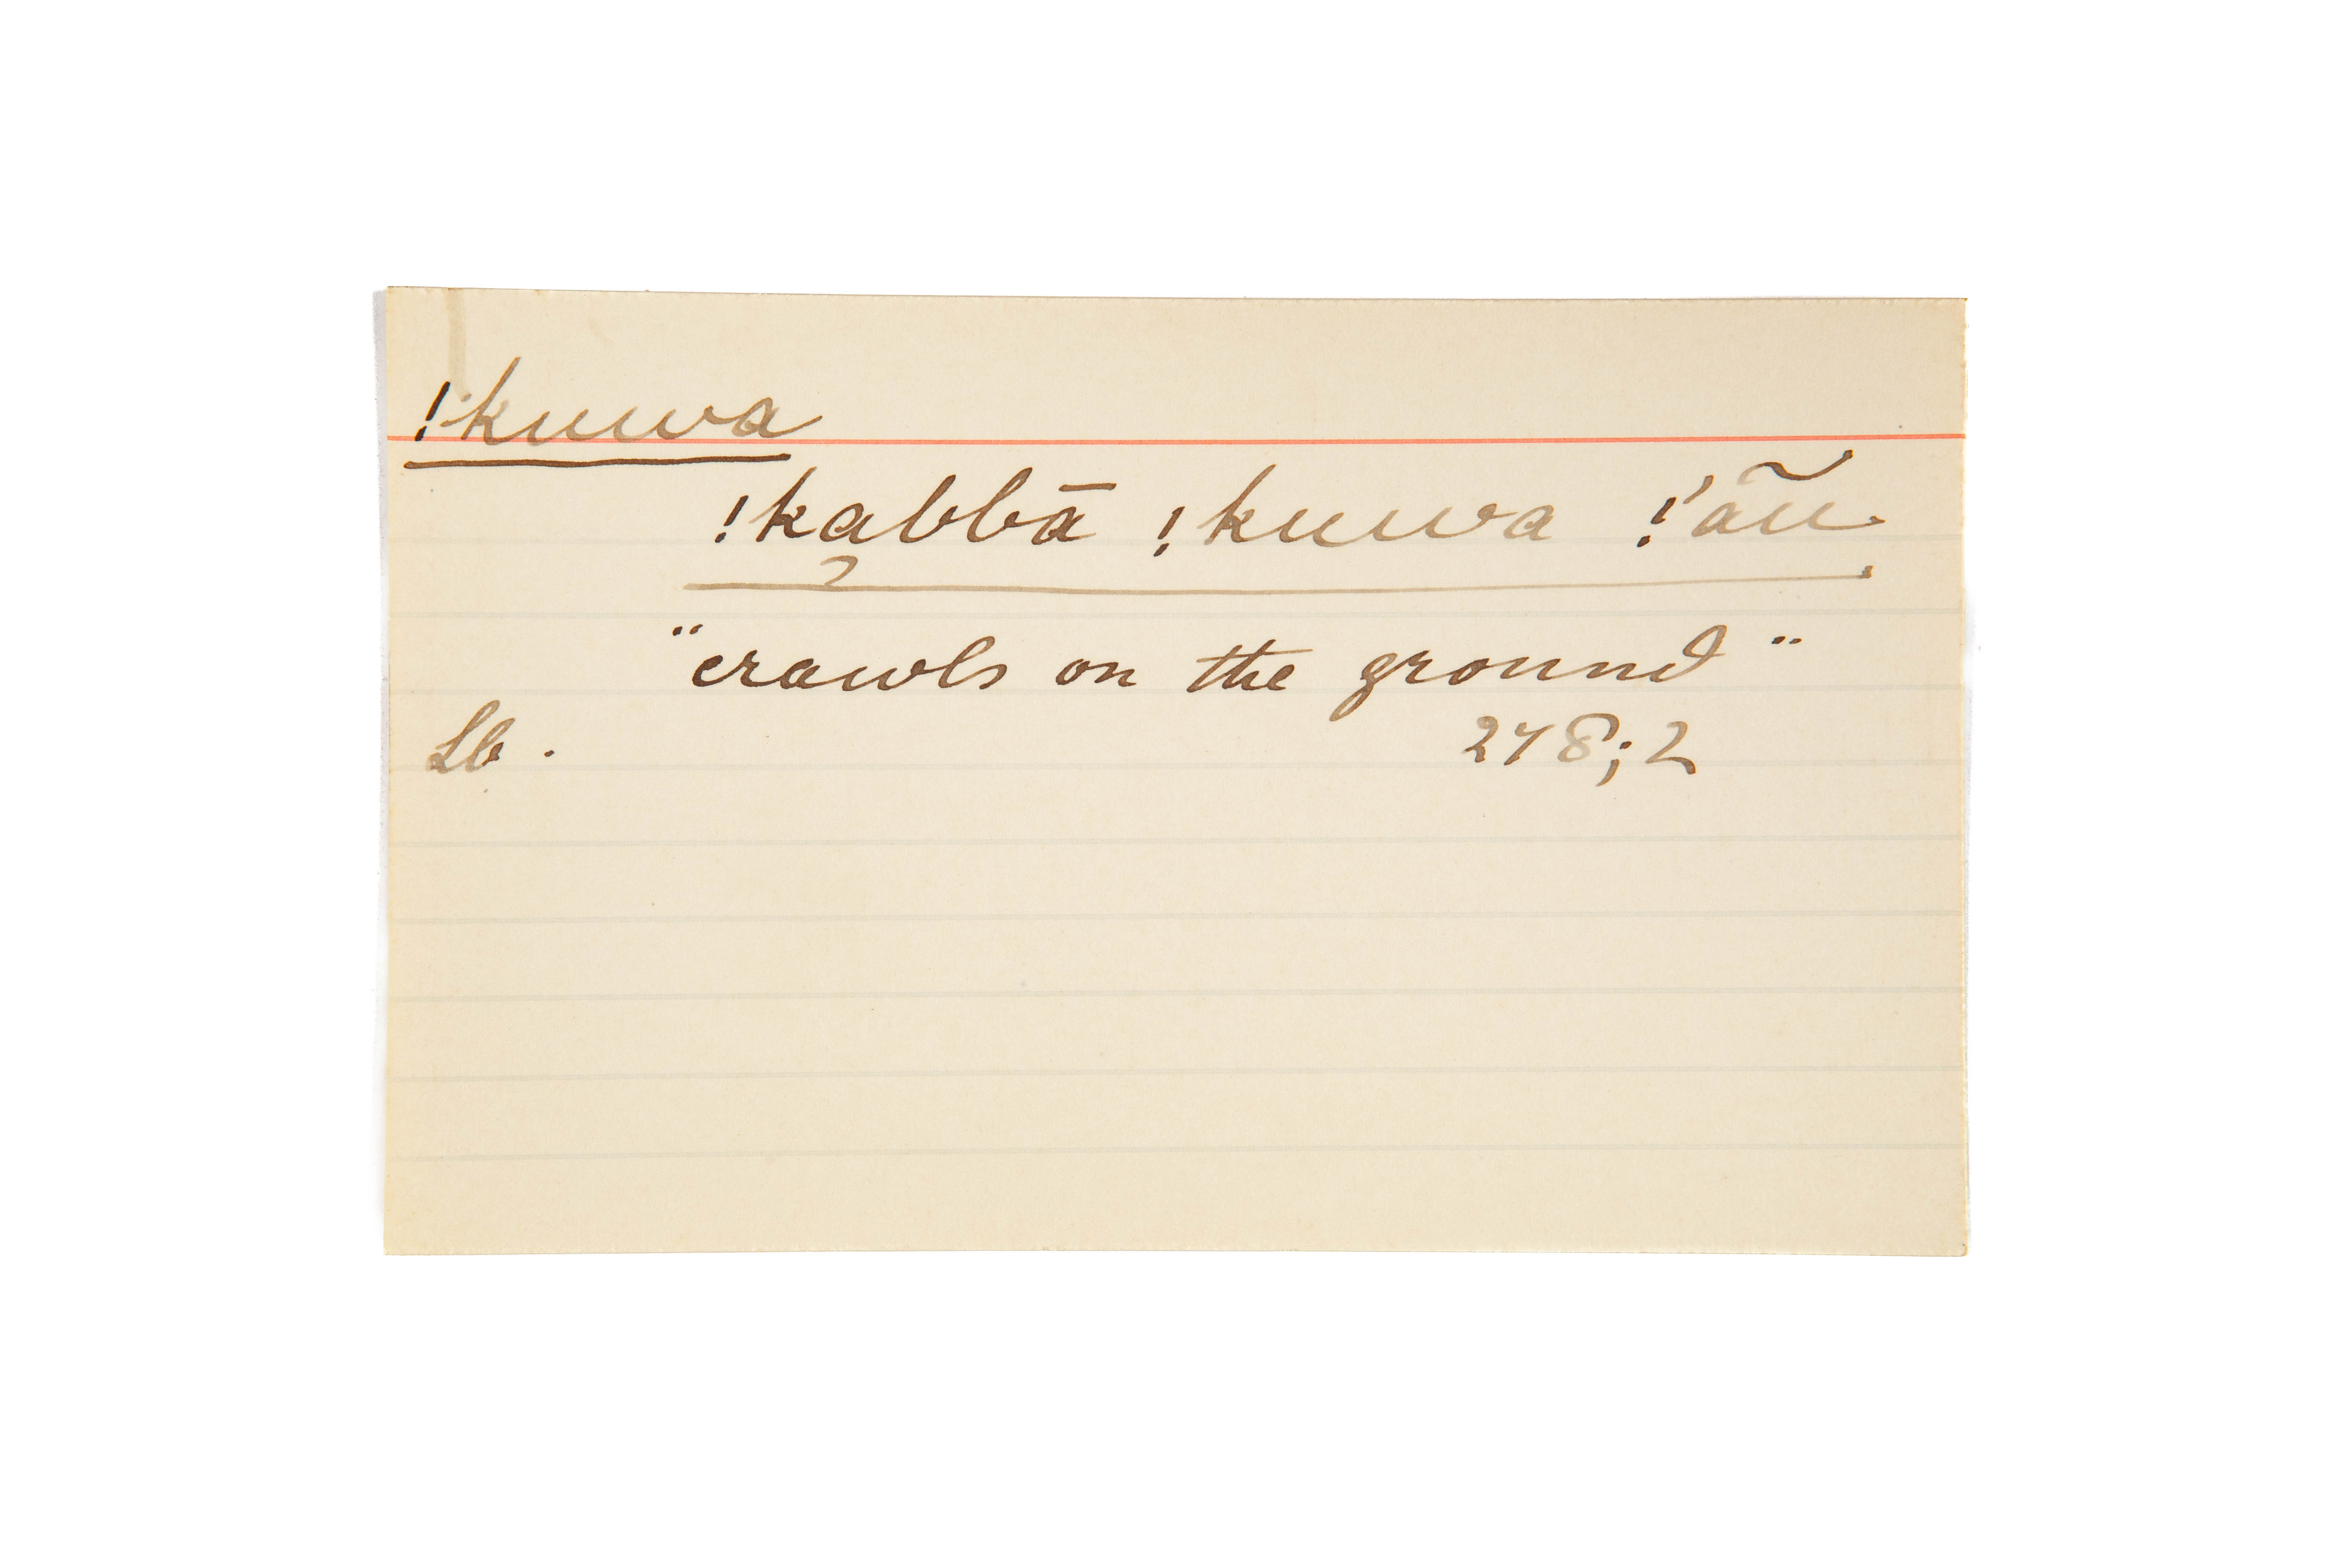 !kuwa
!kabbā !kuwa !'ãũ
"crawls on the ground"
Lb. 278;2